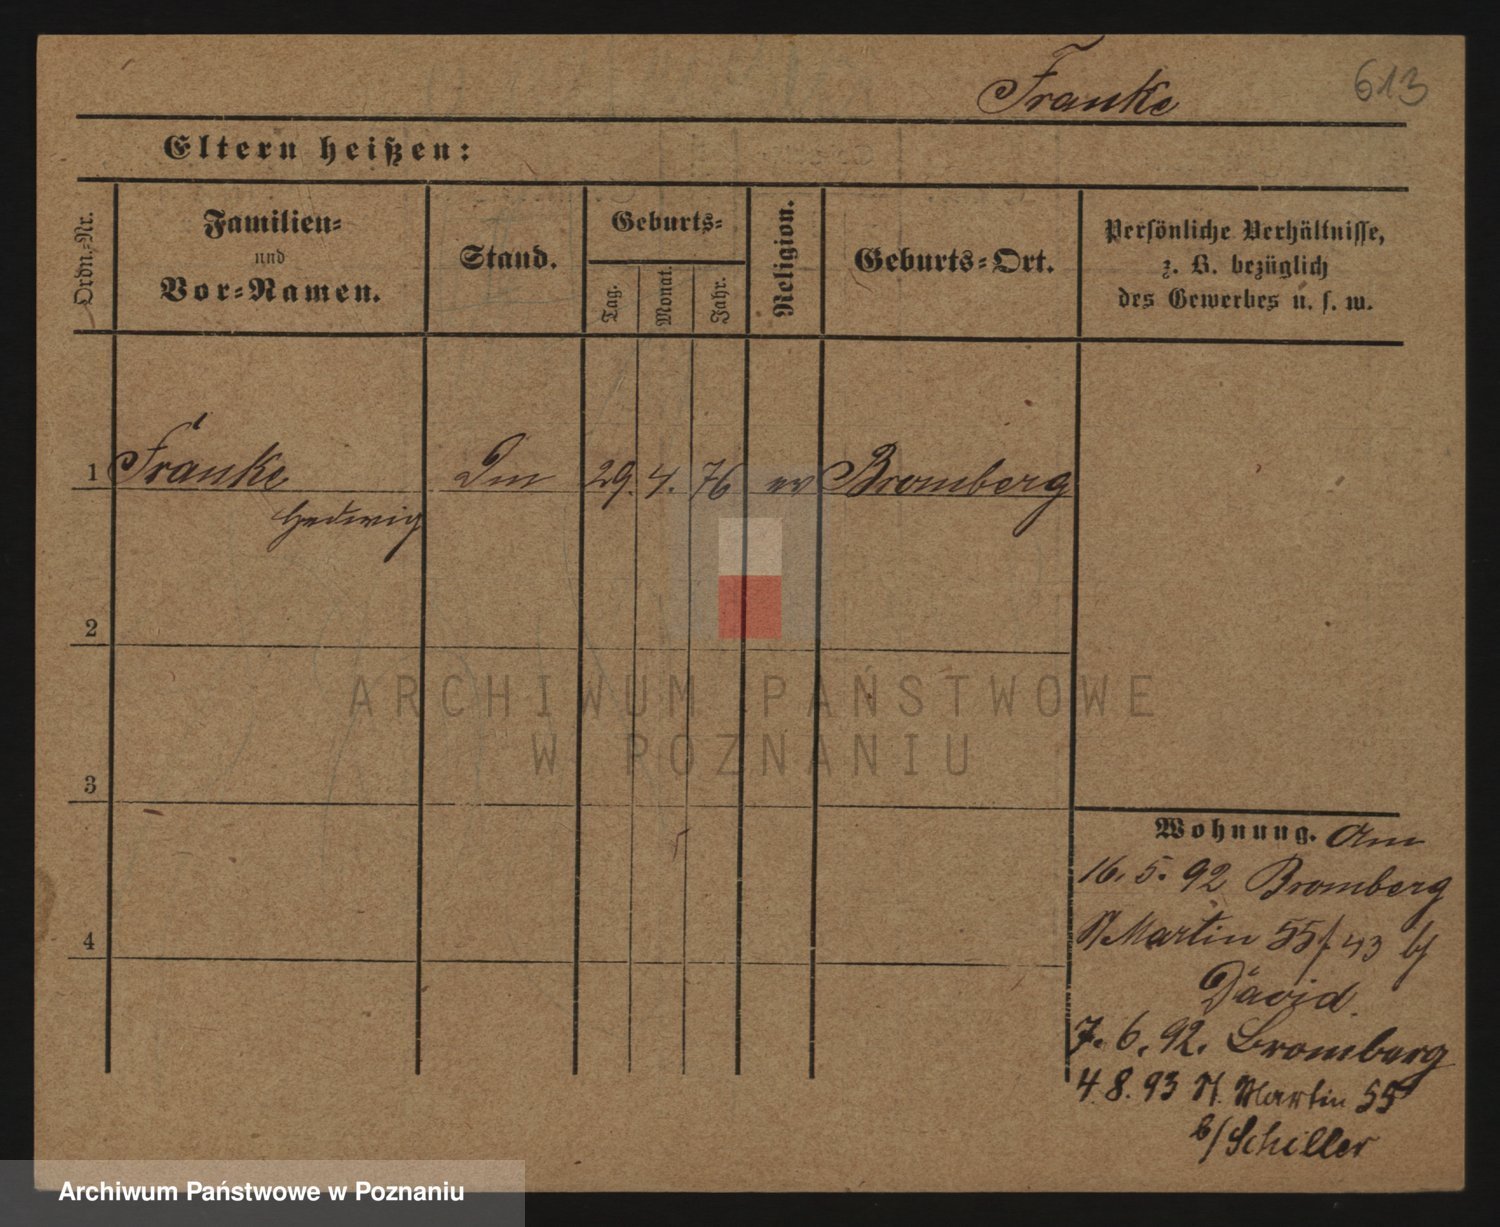 Franke 613
Eltern heißen:
Ordn.-Nr.
Familien-
und
Vor-Namen.
Stand.
Geburts-
Tag.
Monat.
Jahr.
Religion.
Geburts-Ort.
Persönliche Verhältnisse,
z. B. bezüglich
des Gewerbes u. s. w.
1 Franke 29. 4. 76 ev Bromberg
Hedwig
2
3
4
Wohnung. Am
16. 5. 92 Bromberg
St Martin 55/43 b/
David.
7. 6. 92. Bromberg
4. 8. 93 St. Martin 55
b/ Schiller
ARCHIWUM PAŃSTWOWE
W POZNANIU
Archiwum Państwowe w Poznaniu